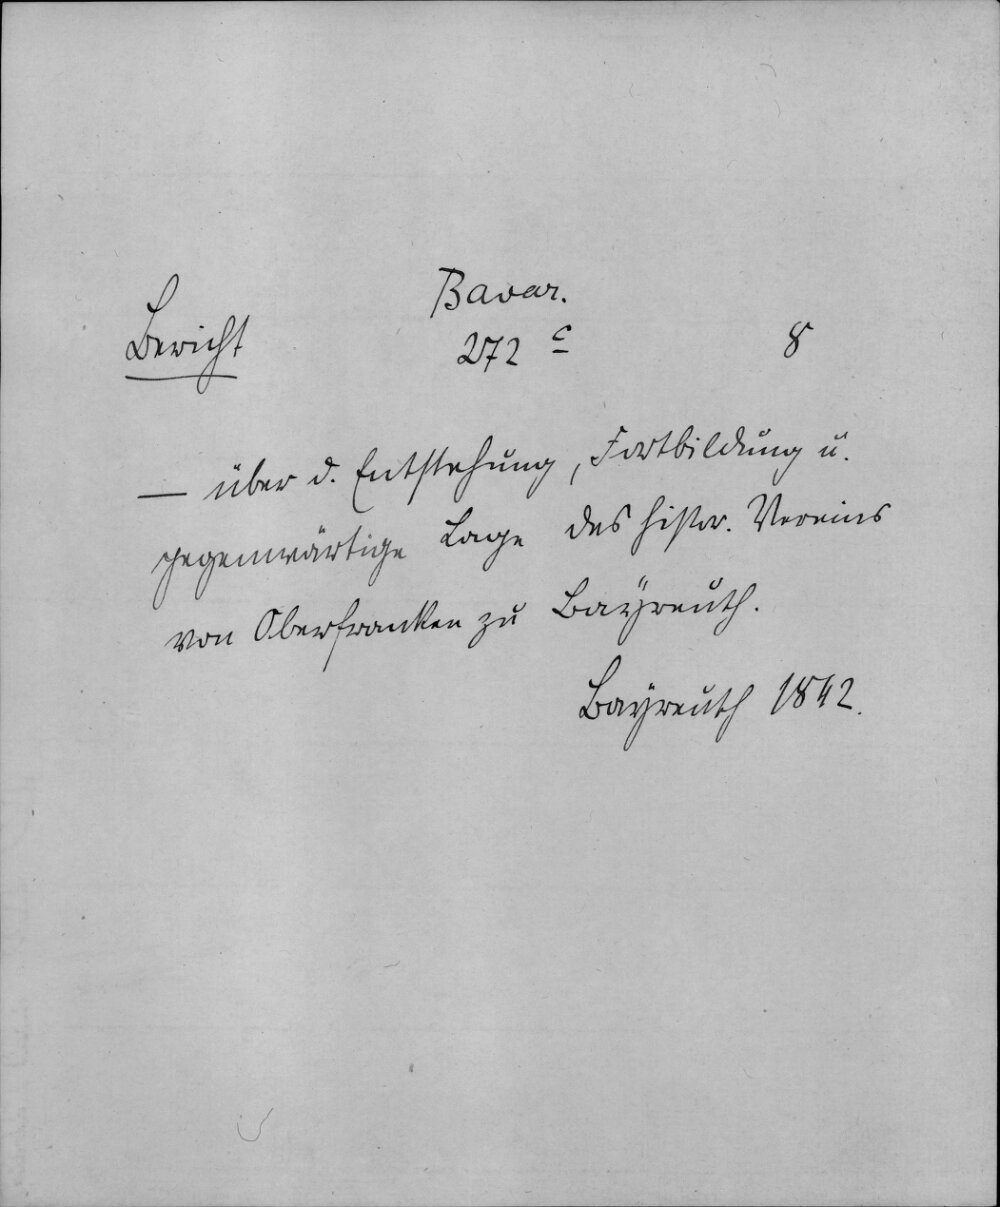 Bavar.
Bericht 272 c 8
— über d. Entstehung, Fortbildung u.
gegenwärtige Lage des histor. Vereins
von Oberfranken zu Bayreuth.
Bayreuth 1842.